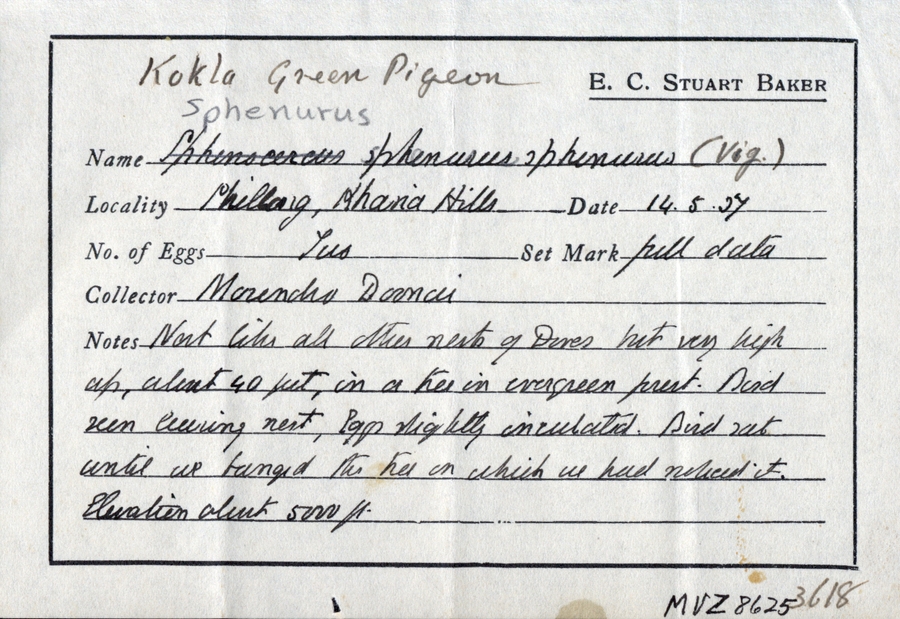 Kokla Green Pigeon
E. C. STUART BAKER
Sphenurus
Name Sphenocercus sphenurus sphenurus (Vig.)
Locality Shillong, Khasia Hills Date 14. 5. 27
No. of Eggs Two Set Mark full data
Collector
Notes Nest like all other nests of Doves but very high
up, about 40 feet, in a tree in evergreen forest. Bird
seen leaving nest, Eggs slightly incubated. Bird sat
until we banged the tree on which we had noticed it.
Elevation about 5000 ft.
MVZ 8625 3618